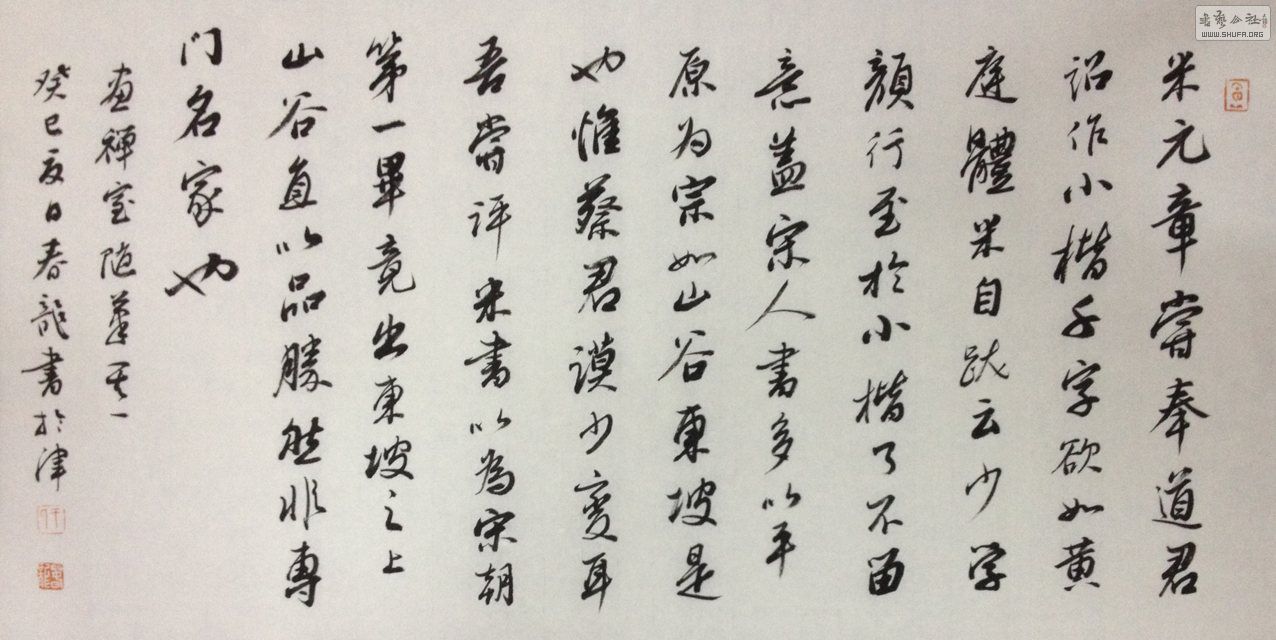 米元章嘗奉道君
詔作小楷千字欲如黄
庭體米自跋云少學
顔行至於小楷了不留
意蓋宋人書多以平
原为宗如山谷東坡是
也惟蔡君謨少變耳
吾嘗評米書以為宋朝
第一畢竟出東坡之上
山谷直以品勝然非專
门名家也
畫禪室随筆其一
癸巳夏日春龍書於津
书艺公社
WWW.SHUFA.ORG